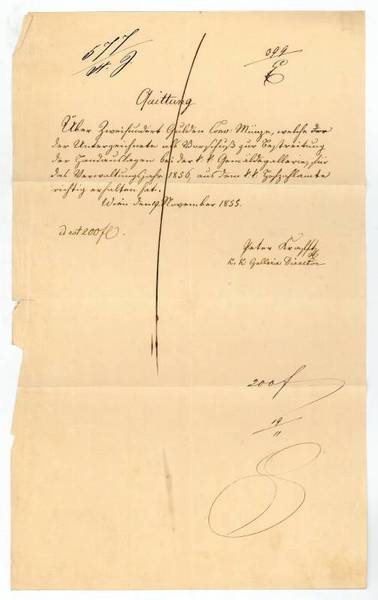 577
399
Quittung
Über Zweihundert Gulden Conv. Münze, welche
der Unterzeichnete als Vorschuß zur Bestreitung
der Handauslagen bei der k. k. Gemäldegallerie, für
das Verwaltungsjahr 1856, aus dem k. k. Hofzahlamte
richtig erhalten hat.
Wien den 19 November 1855.
id est 200 f
Peter Krafft
k. k. Gallerie Director
200 f
19/11